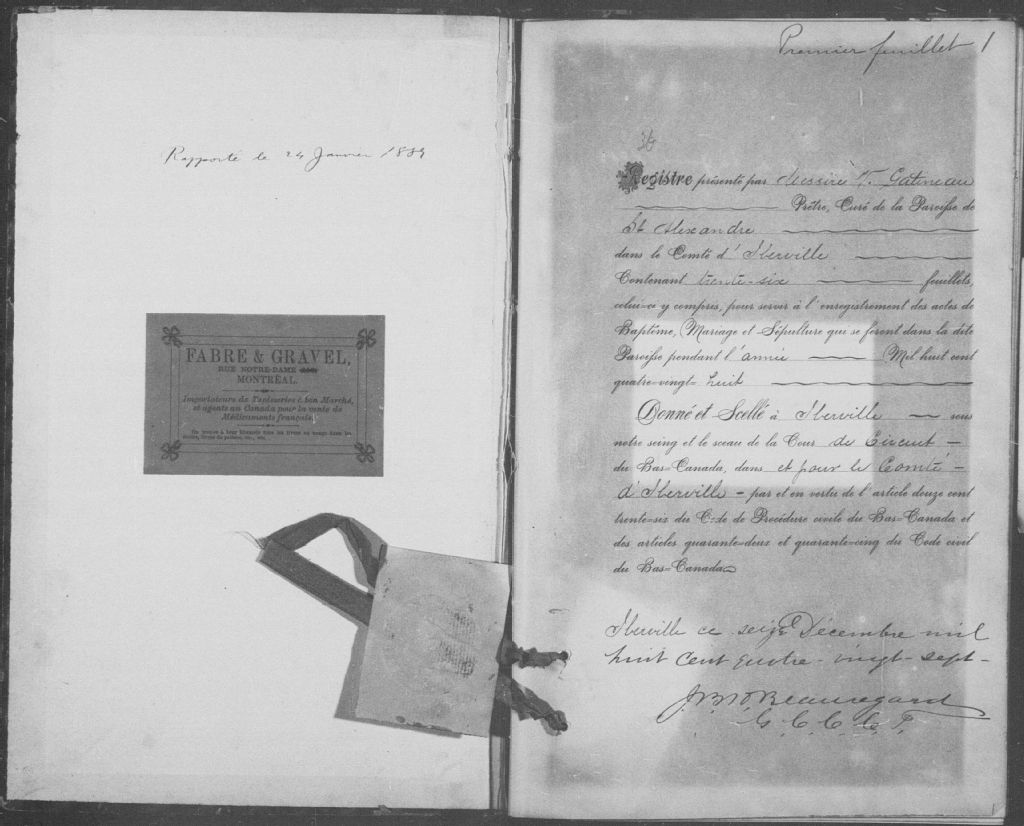 Rapporté le 24 Janvier 1889
FABRE & GRAVEL,
RUE NOTRE-DAME
MONTRÉAL.
Importateurs de Tapisseries à bon Marché,
et agents au Canada pour la vente de
Médicaments français.
On trouve à leur librairie tous les livres en usage dans les
Premier feuillet 1
36
Registre présenté par Messire T. Gatineau
Prêtre, Curé de la Paroisse de
St Alexandre
dans le Comté d'Iberville
Contenant trente-six feuillets,
celui-ci y compris, pour servir à l'enregistrement des actes de
Baptême, Mariage et Sépulture qui se feront dans la dite
Paroisse pendant l'année Mil huit cent
quatre-vingt-huit
Donné et Scellé à Iberville sous
notre seing et le sceau de la Cour de Circuit
du Bas-Canada, dans et pour le Comté
d'Iberville - par et en vertu de l'article douze cent
trente-six du Code de Procédure civile du Bas-Canada et
des articles quarante-deux et quarante-cinq du Code civil
du Bas-Canada
Iberville ce seize Décembre mil
huit cent quatre-vingt-sept-
Beauregard
G. C. C. C. I.